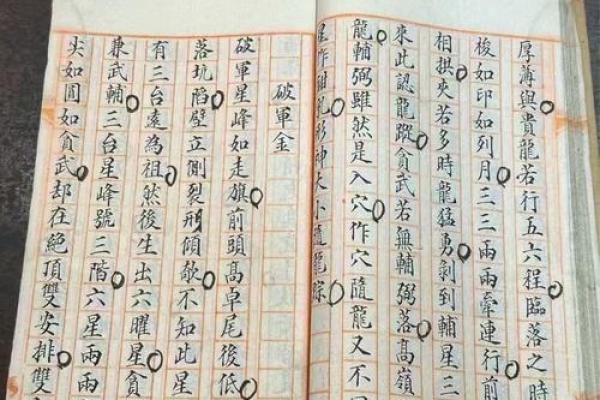 厚薄與貴龍若行五六程臨落之時
梭如印如列月三三兩兩牽連行前
相拱夾若多時龍猛勇剝到輔星三
來此認龍蹤貪武若無輔弼落高嶺
龍輔弼雖然是入穴作穴隨龍又不
星作乳形神大小隨龍踪
破軍金
破軍星峰如走旗前頭高卓尾後低
落坑陷壁立側裂形傾欹不知此星
有三台遠為祖然後生出六曜星貪
兼武輔三台星峰號三階六星兩兩
尖如圓如貪武却在絕頂雙安排雙